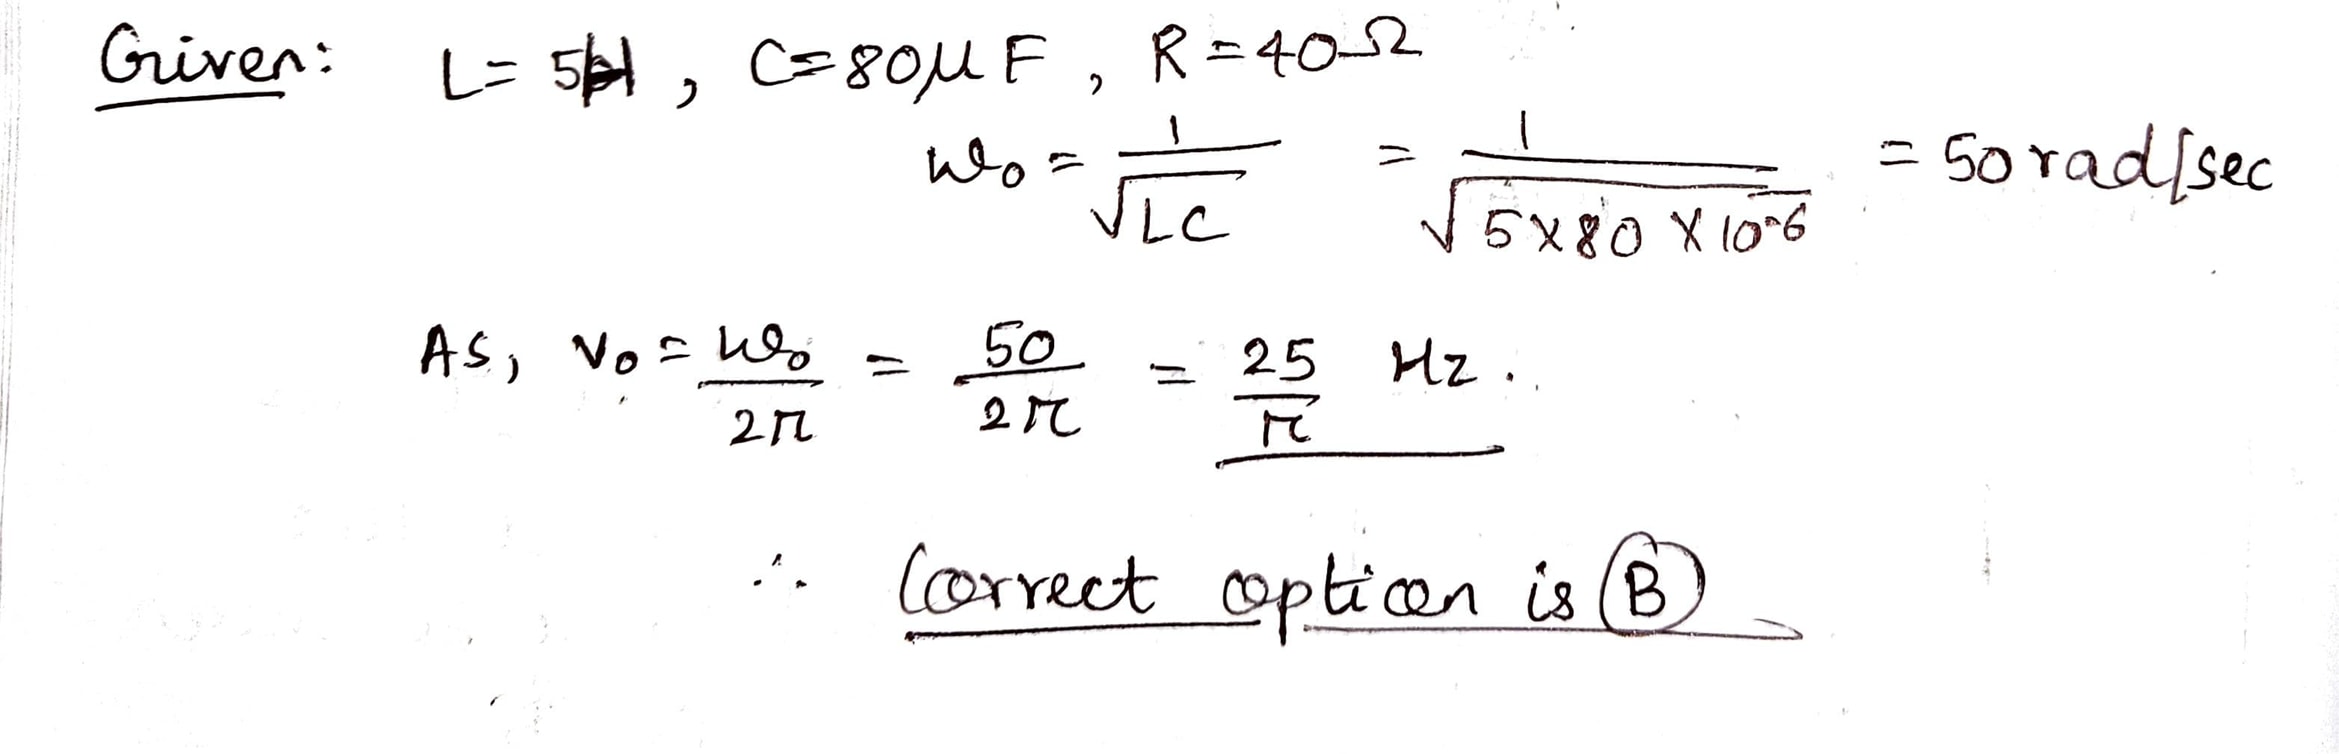 Given: L = 5H, C = 80μF, R = 40Ω
ω₀ = 1/√LC = 1/√5×80×10⁻⁶ = 50 rad/sec
As, ν₀ = ω₀/2π = 50/2π = 25/π Hz.
∴ Correct option is B